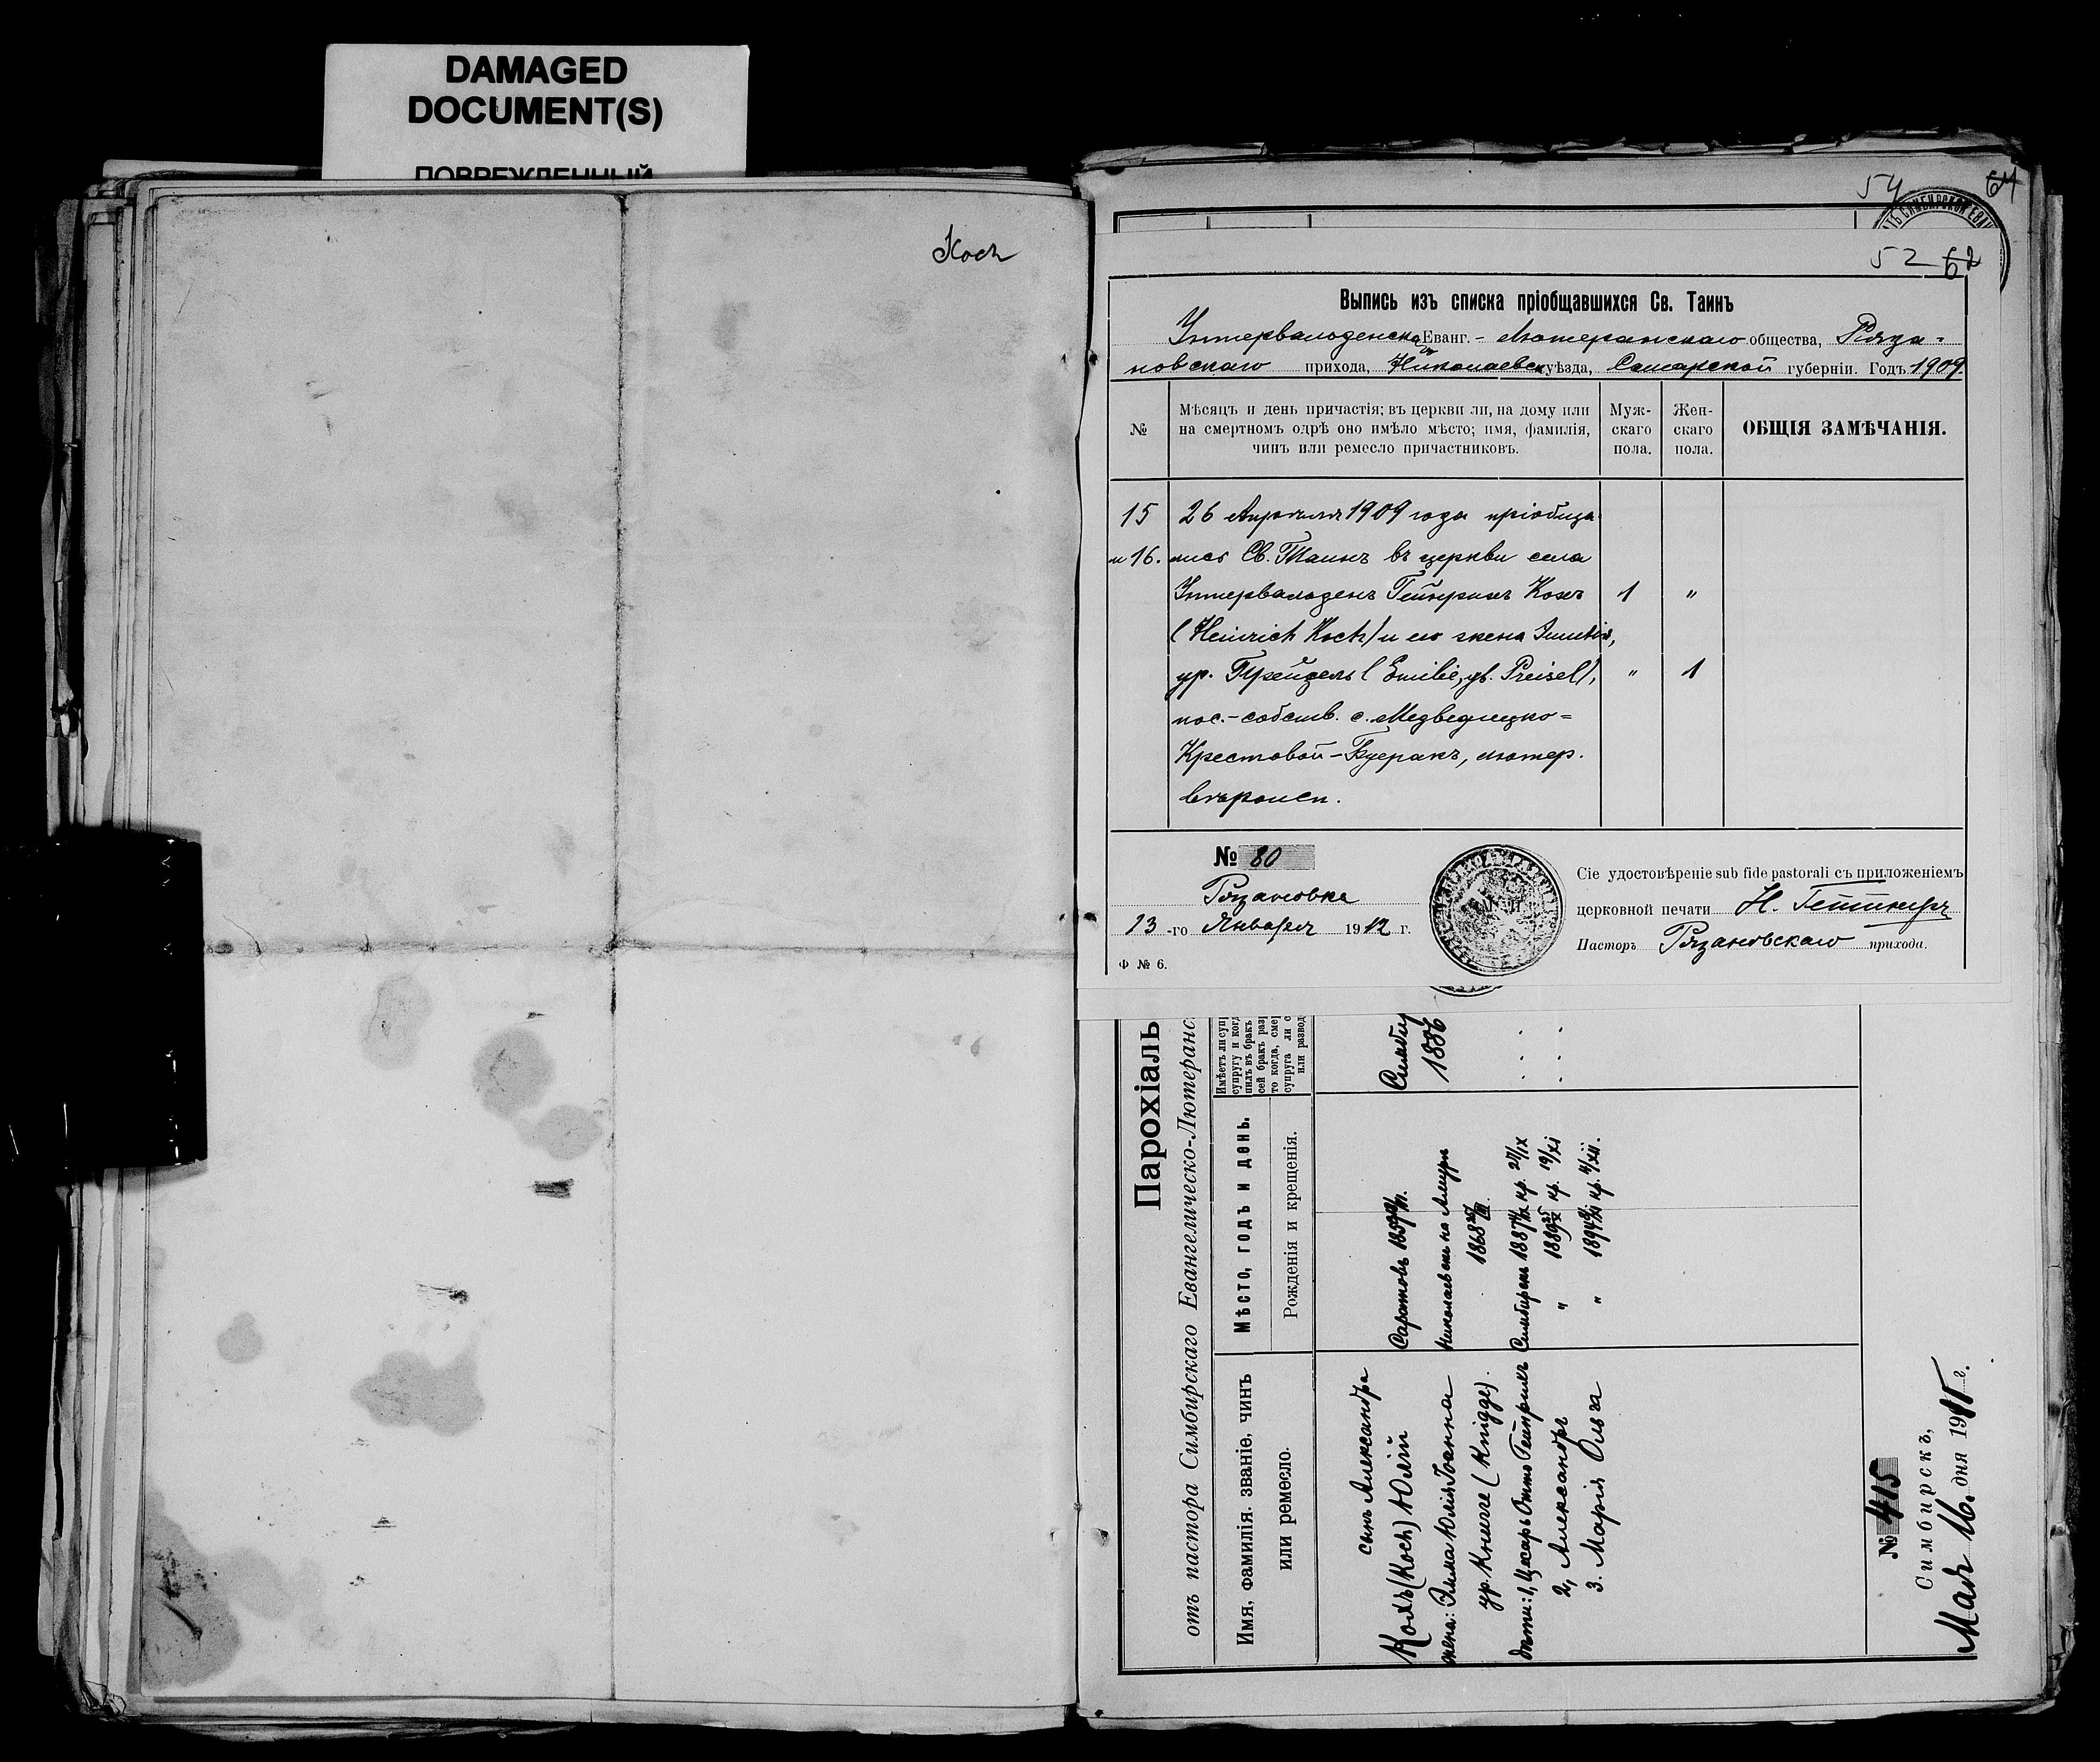 DAMAGED
DOCUMENT(S)
ПОВРЕЖДЕННЫЙ
Koch
54 64
52 62
Выпись изъ списка пріобщавшихся Св. Таинъ
Унтервальденска Еванг.-Лютеранскаго общества, Ряза-
новскаго прихода, Николаевск уѣзда, Самарской губерніи. Годъ 1909.
№
Мѣсяцъ и день причастія; въ церкви ли, на дому или
на смертномъ одрѣ оно имѣло мѣсто; имя, фамилія,
чинъ или ремесло причастниковъ.
Муж-
скаго
пола.
Жен-
скаго
пола.
ОБЩІЯ ЗАМѢЧАНІЯ.
15 26 Апрѣля 1909 года пріобща-
и 16. лись Св. Таинъ въ церкви села
Унтервальденъ Гейнрихъ Кохъ 1 "
(Heinrich Koch) и его жена Эмилія,
ур. Прейцель (Emilie, gb. Preizel), " 1
пос.-собств. с. Медведицко=
Крестовой-Буеракъ, лютер.
вѣроисп.
№ 80
Рязановка
13-го Января 1912 г.
Ф № 6.
Сіе удостовѣреніе sub fide pastorali съ приложеніемъ
церковной печати
Пасторъ Рязановскаго прихода.
Парохіаль
отъ пастора Симбирскаго Евангелическо-Лютеранс
Имя, фамилія. званіе, чинъ
или ремесло.
Мѣсто, годъ и день.
Рожденія и крещенія.
Имѣетъ ли суп
супругу и ког
пилъ въ бракъ
сей бракъ раз
то когда, сме
супруга ли с
или развод
сынъ Александра
Кохъ (Koch) Юлій Саратовъ Симбир
1886
жена: Эмма Юлія Іоанна Николаевскъ на Амурѣ
ур. Книгге (Knigge). 1868
дѣти: 1, Цезарь Отто Гейнрихъ Симбирскъ 1887 кр.
2, Александръ " 1889 кр.
3. Марія Ольга " 1894 кр.
№ 415
Симбирскъ,
Мая 16. дня 1911 г.